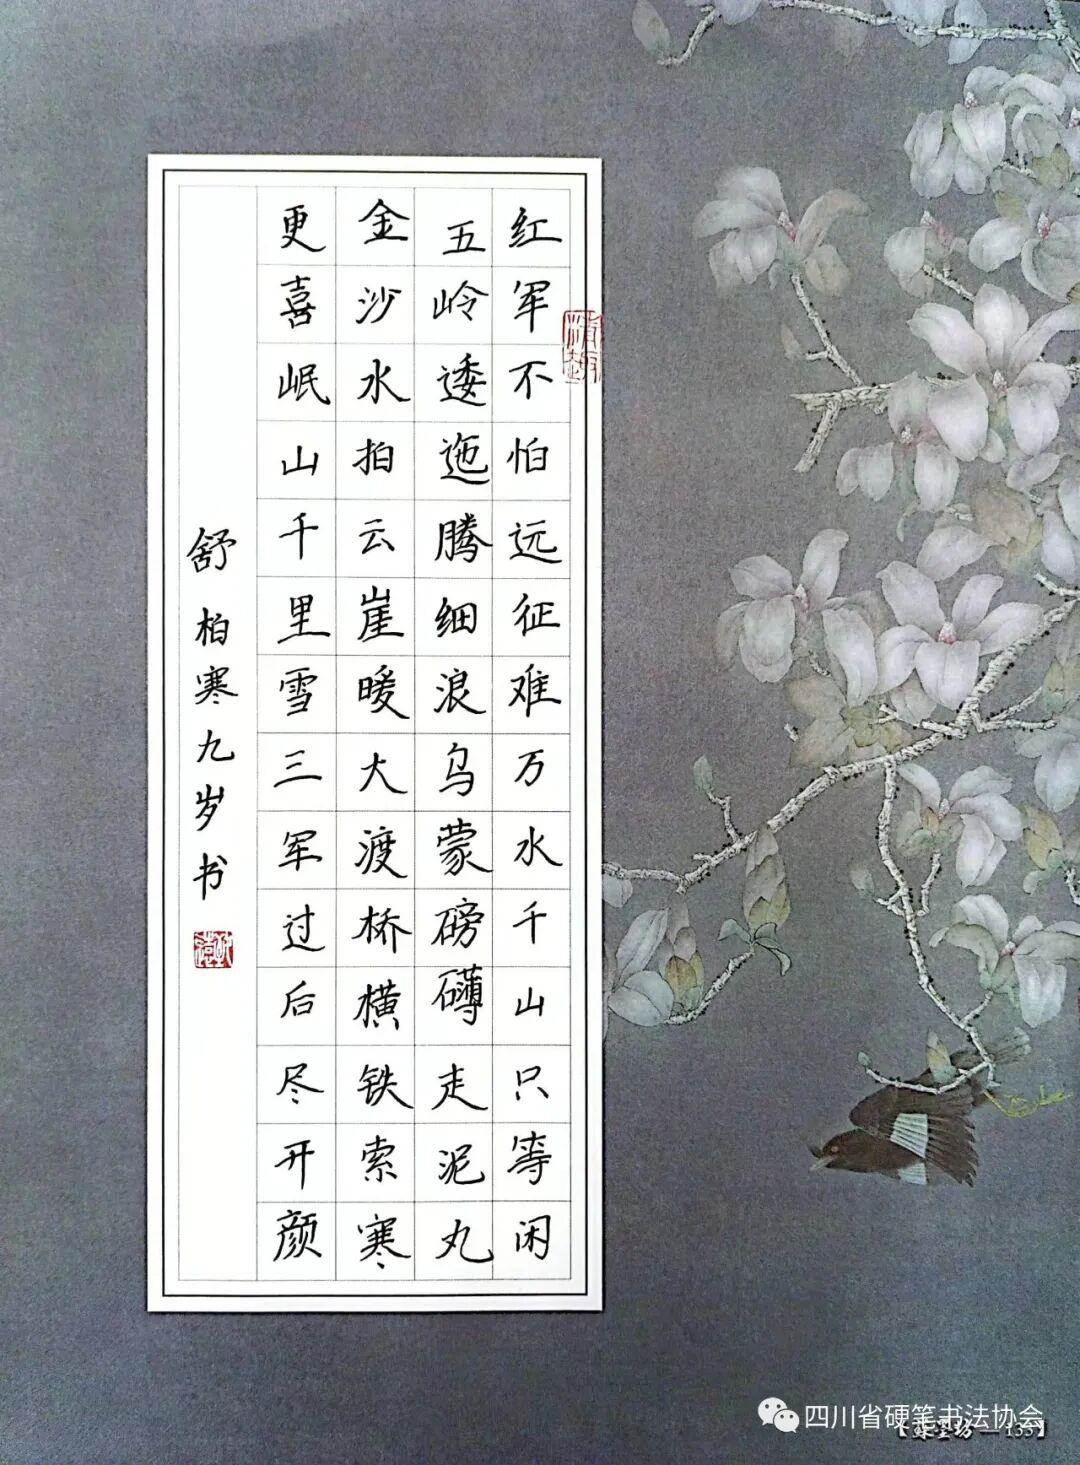 红军不怕远征难万水千山只等闲
五岭逶迤腾细浪乌蒙磅礴走泥丸
金沙水拍云崖暖大渡桥横铁索寒
更喜岷山千里雪三军过后尽开颜
舒柏寒九岁书
清趣
四川省硬笔书法协会
135